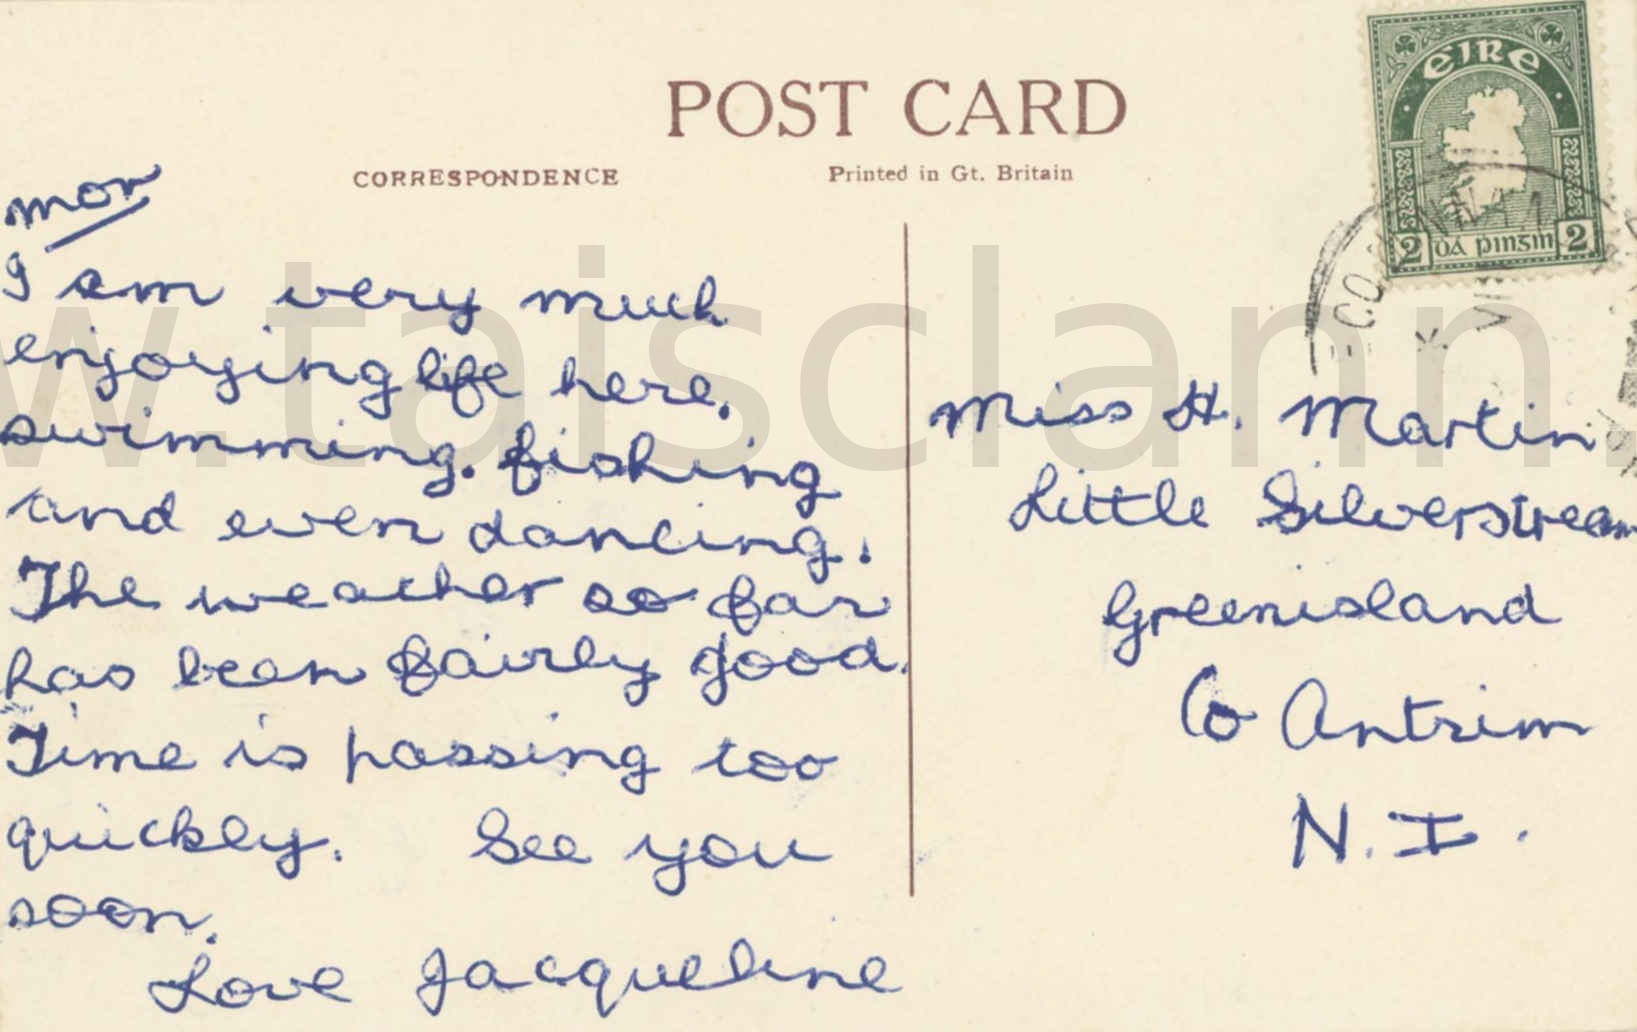 POST CARD
CORRESPONDENCE
Printed in Gt. Britain
ÉIRE
2 DÁ PINGIN 2
www.taisclann.
Mon
I am very much
enjoying life here.
swimming. fishing
and even dancing.
The weather so far
has been fairly good.
Time is passing too
quickly. See you
soon.
Love Jacqueline
Miss H. Martin
Little Silverstream
Greenisland
Co Antrim
N. I.